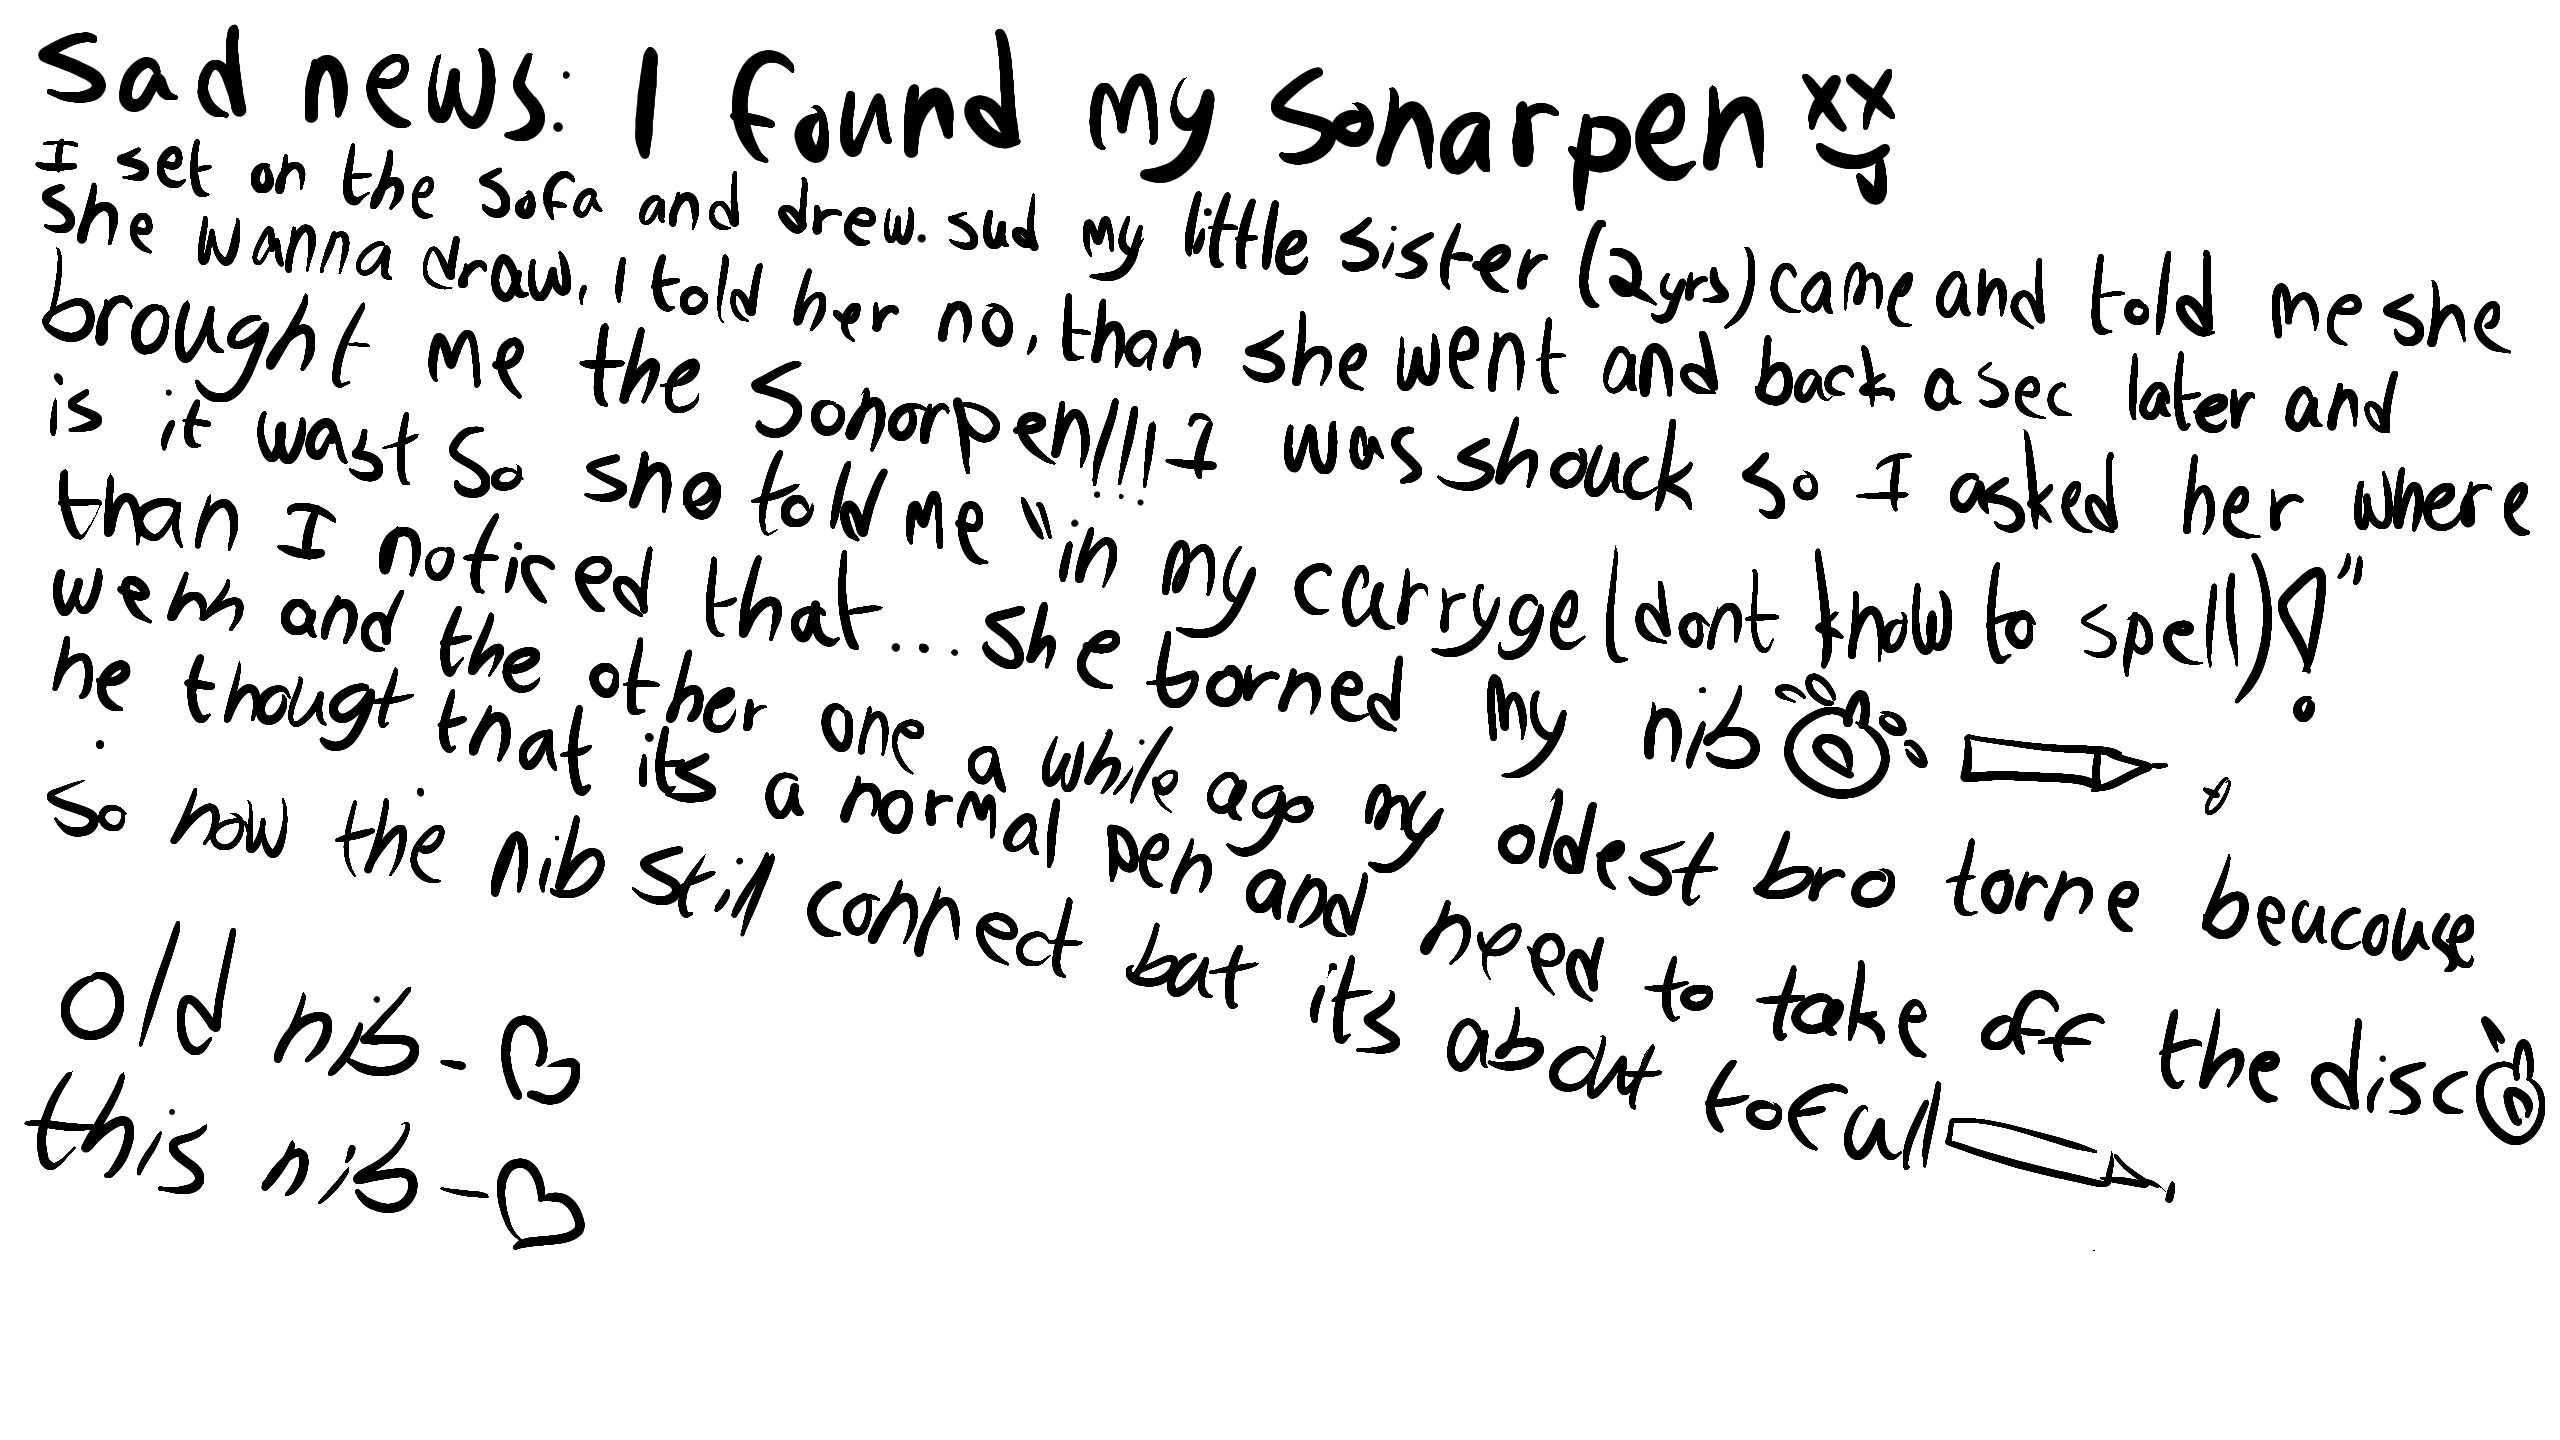 Sad news: I found my Sonarpen
I set on the sofa and drew. sud my little sister (2yrs) came and told me she
she wanna draw, I told her no, than she went and back a sec later and
brought me the Sonorpen!!! I was shouck so I asked her where
is it wast so sho told me "in my carryge (dont know to spell)!"
than I noticed that... she torned my nib
wenn and the other one a while ago my oldest bro torne beucouse
he thougt that its a normal pen and need to take off the disc
so now the nib still connect bat its about to fall
old nib -
this nib -